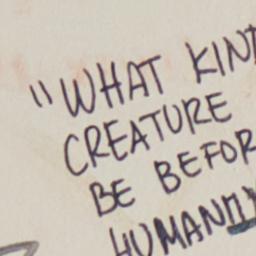 "WHAT KIND
CREATURE
BE BEFOR
HUMAN